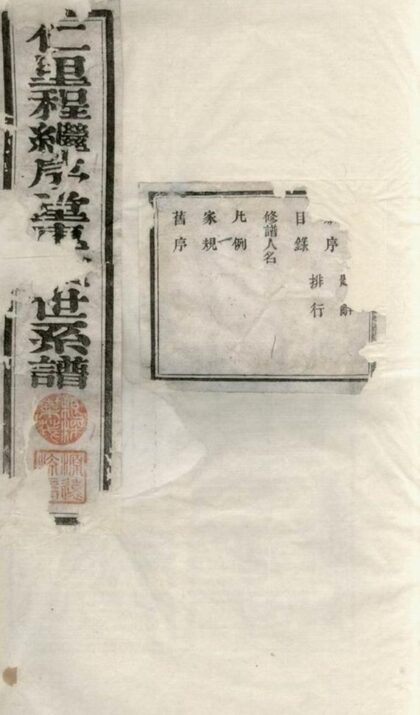 仁里程繼序堂專世系譜
序
排行
目錄
修譜人名
凡例
家規
舊序